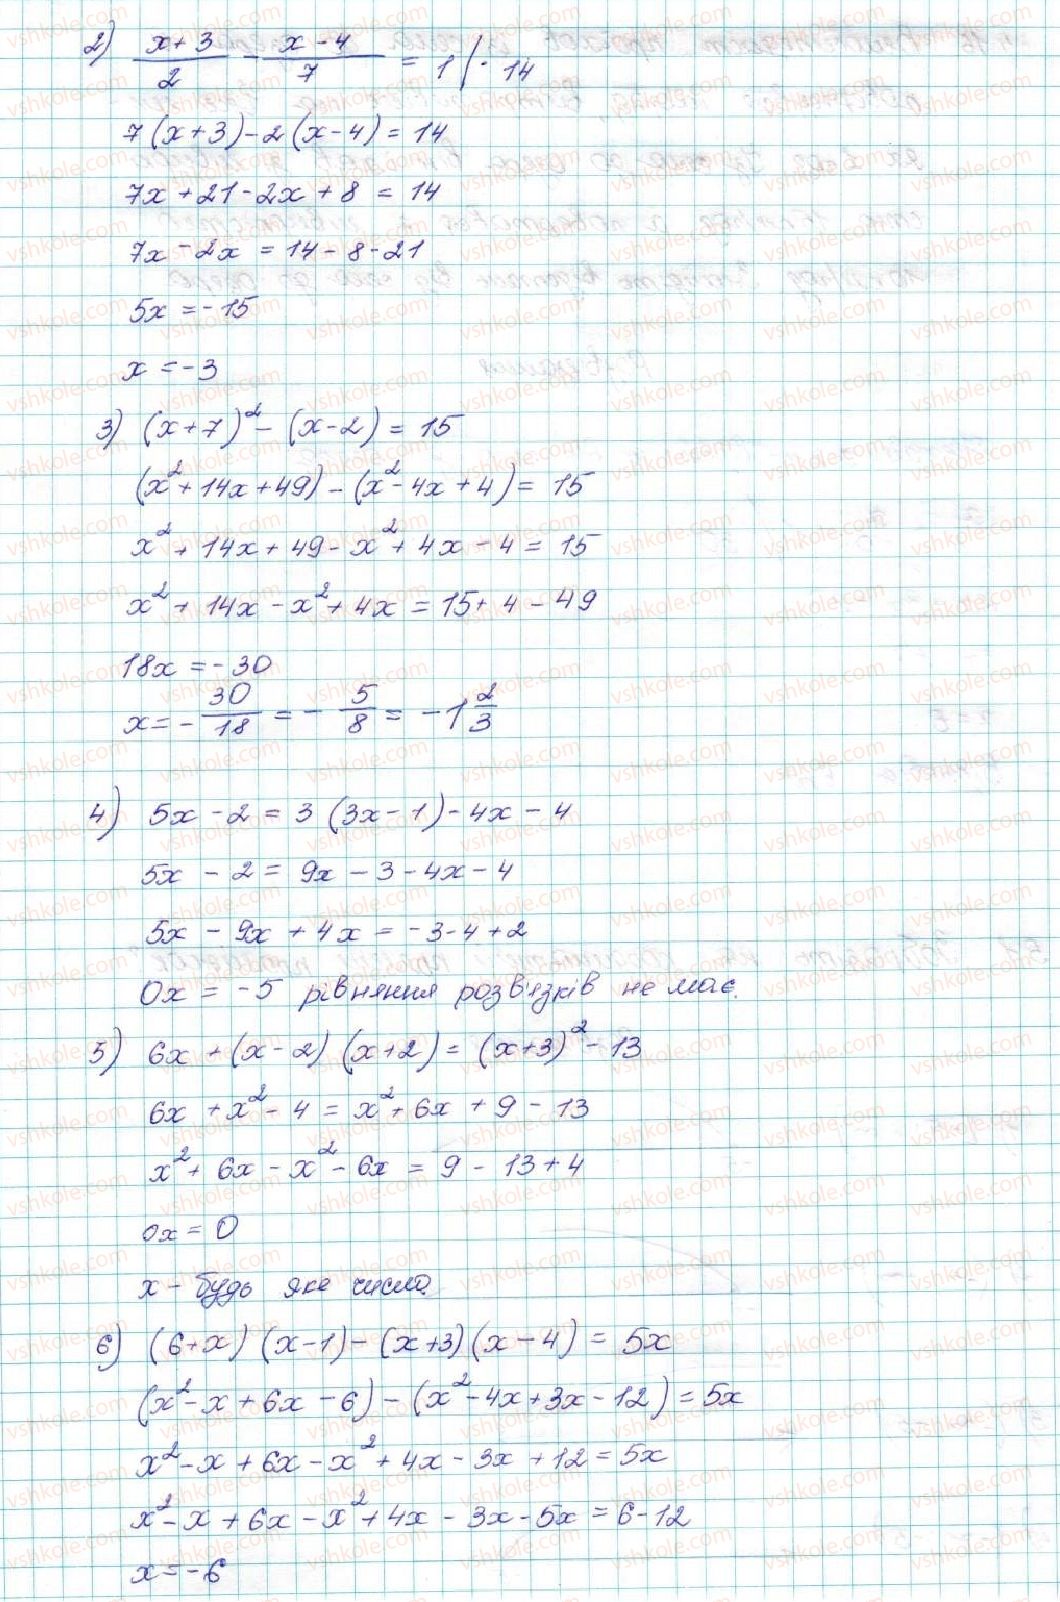 2) (x+3)/2 - (x-4)/7 = 1 | · 14
7(x+3)-2(x-4)=14
7x+21-2x+8=14
7x-2x=14-8-21
5x=-15
x=-3
3) (x+7)²-(x-2)=15
(x²+14x+49)-(x²-4x+4)=15
x²+14x+49-x²+4x-4=15
x²+14x-x²+4x=15+4-49
18x=-30
x=-30/18=-5/8=-1 2/3
4) 5x-2=3(3x-1)-4x-4
5x-2=9x-3-4x-4
5x-9x+4x=-3-4+2
0x=-5 рівняння розв'язків не має.
5) 6x+(x-2)(x+2)=(x+3)²-13
6x+x²-4=x²+6x+9-13
x²+6x-x²-6x=9-13+4
0x=0
x - будь яке число
6) (6+x)(x-1)-(x+3)(x-4)=5x
(x²-x+6x-6)-(x²-4x+3x-12)=5x
x²-x+6x-x²+4x-3x+12=5x
x²-x+6x-x²+4x-3x-5x=6-12
x=-6